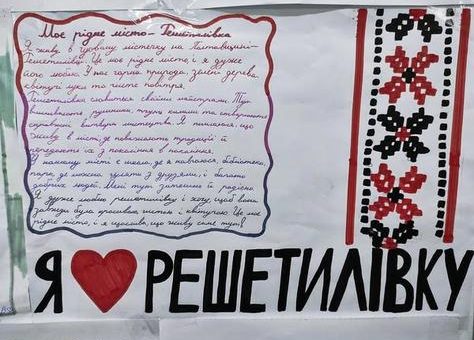 Моє рідне місто - Решетилівка
Я живу в чудовому містечку на Полтавщині -
Решетилівці. Це моє рідне місто, і я дуже
його люблю. У нас гарна природа: зелені дерева,
квітучі луки та чисте повітря.
Решетилівка славиться своїми майстрами. Тут
вишивають рушники, тчуть килими та створюють
справжні витвори мистецтва. Я пишаюся, що
живу в місті, де поважають традиції й
передають їх з покоління в покоління.
У нашому місті є школа, де я навчаюся, бібліотека,
парк, де можна гуляти з друзями, і багато
добрих людей. Мені тут затишно й радісно.
Я дуже люблю Решетилівку і хочу, щоб вона
завжди була красивою, чистою і квітучою. Це моє
рідне місто, і я щаслива, що живу саме тут!
Я РЕШЕТИЛІВКУ